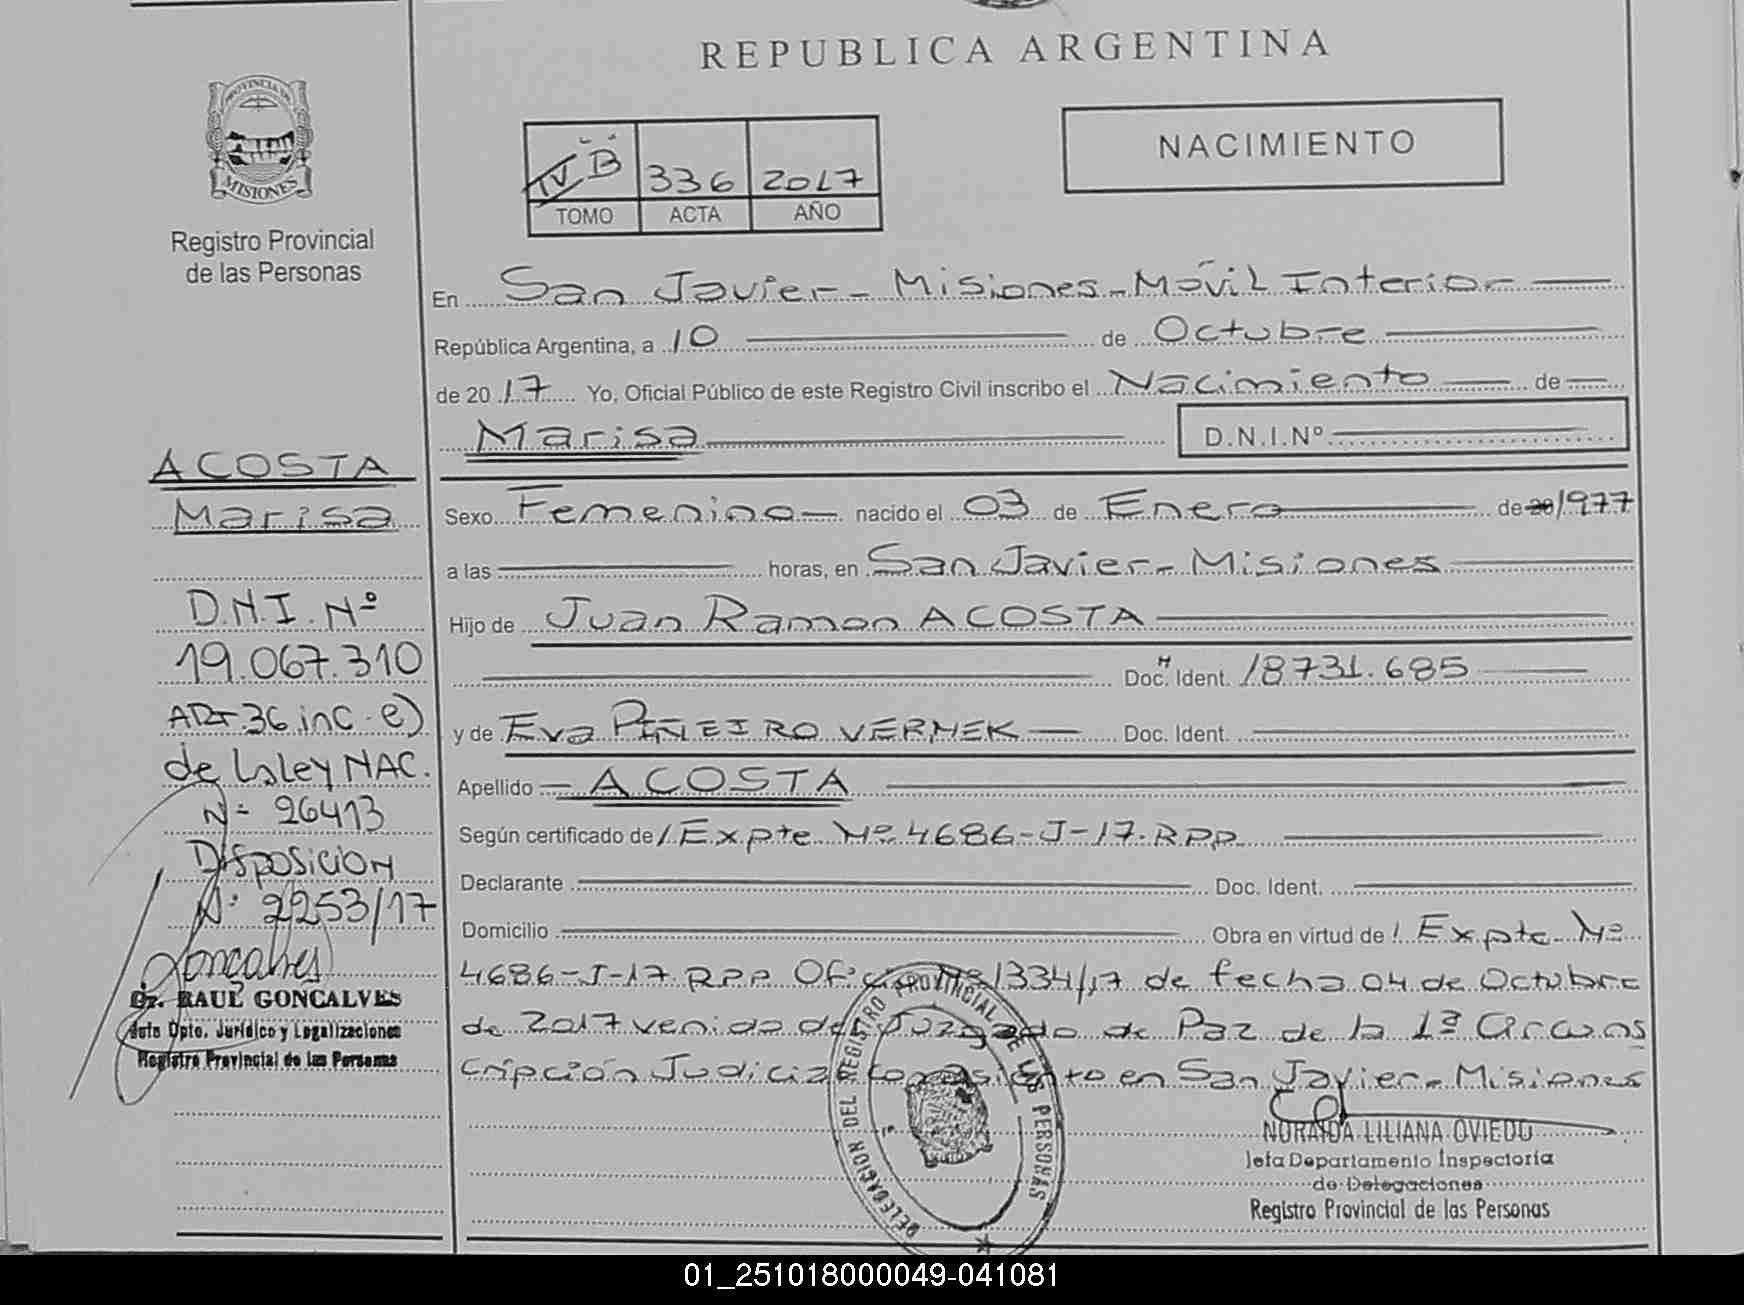 REPUBLICA ARGENTINA
PROVINCIA DE
MISIONES
Registro Provincial
de las Personas
NACIMIENTO
IV B 336 2017
TOMO ACTA AÑO
En San Javier - Misiones - Móvil Interior
República Argentina, a 10 de Octubre
de 2017 Yo, Oficial Público de este Registro Civil inscribo el Nacimiento de
Marisa D.N.I.Nº
Sexo Femenino nacido el 03 de Enero de 20 1977
a las horas, en San Javier - Misiones
Hijo de Juan Ramon ACOSTA
Doc. Ident. 18731.685
y de Eva PIÑEIRO VERNEK Doc. Ident.
Apellido ACOSTA
Según certificado de / Expte Nº 4686-J-17. RPP
Declarante Doc. Ident.
Domicilio Obra en virtud de / Expte Nº
4686-J-17 RPP Oficio Nº 1334/17 de fecha 04 de Octubre
de 2017 venido del Juzgado de Paz de la 1ª Circuns
cripción Judicial con asiento en San Javier - Misiones
ACOSTA
Marisa
D.N.I. Nº
19.067.310
ART 36 inc. e)
de la Ley NAC.
Nº 26413
Disposicion
Nº 2253/17
Goncalves
Dr. RAUL GONCALVES
Jefe Dpto. Jurídico y Legalizaciones
Registro Provincial de las Personas
DELEGACION DEL REGISTRO PROVINCIAL DE LAS PERSONAS
NORAIDA LILIANA OVIEDO
Jefa Departamento Inspectoria
de Delegaciones
Registro Provincial de las Personas
01_251018000049-041081